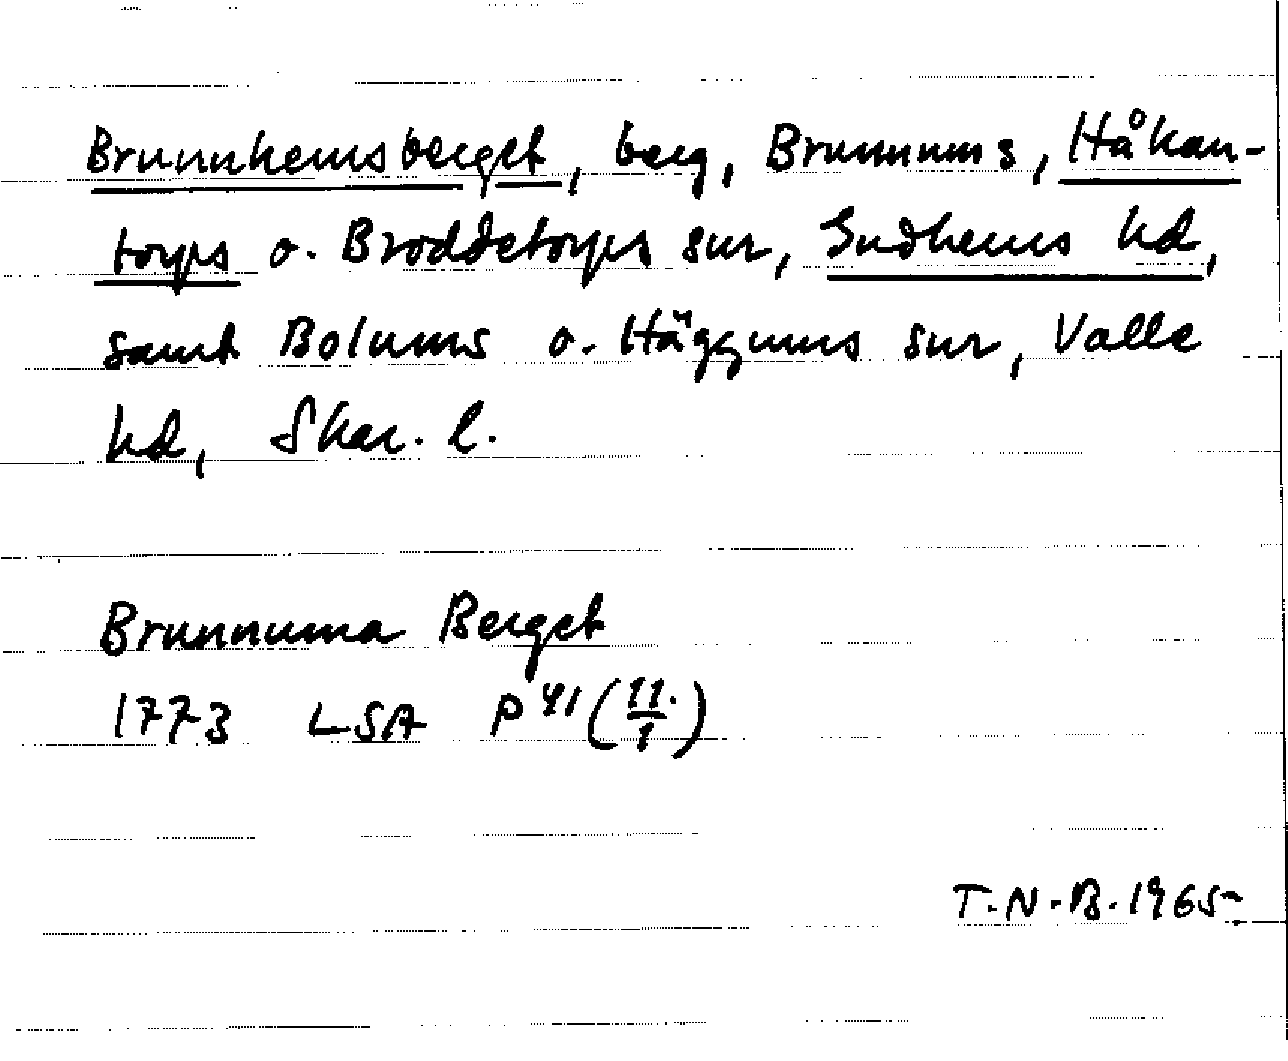 Brunnhemsberget, berg, Brunnums, Håkan-
torps o. Broddetorps snr, Gudhems hd,
samt Bolums o. Häggums snr, Valle
hd, Skar. l.
Brunnuma Berget
1773 LSA P 41 (11./1)
T.N.B. 1965